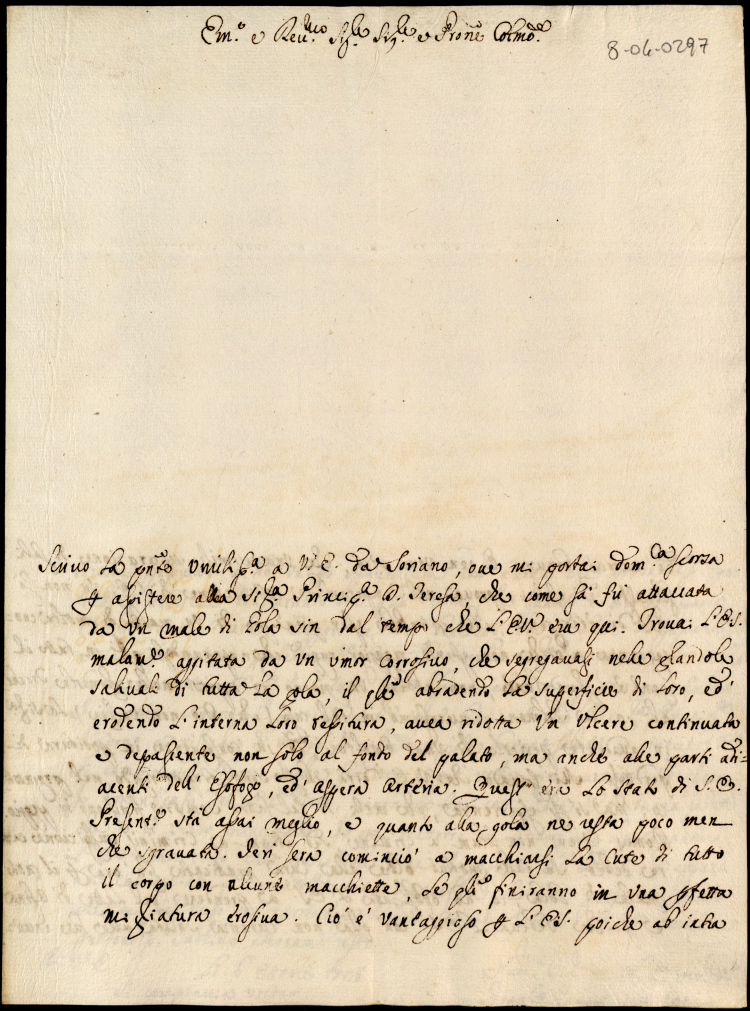 Em.º e Rev.mo Sig.re Sig.re e Prone Colmo.
8-04-0297
Scrivo la pnte umiliss.a a V. E. da Soriano, ove mi portai dom.ca scorsa
p assistere alla Sig.ra Princip.a D. Teresa, che come sà fu attaccata
da un male di gola sin dal tempo che L'E.V. era qui. Trovai L'E.S.
malam.te aggitata da un umor corrosivo, che segregavasi nelle glandole
salivali di tutta la gola, il qle abradendo la superficie di loro, ed'
erodendo l'interna loro tessitura, avea ridotta un ulcere continuata
e depascente non solo al fondo del palato, ma anche alle parti adi-
acenti dell' Esofogo, ed' aspera Artéria. Quest' éra lo stato di S. E.
Present.e stà assai meglio, e quanto alla gola ne resta poco men
che sgravata. Jeri sera cominciò a macchiarsi la cute di tutto
il corpo con alcune macchiette, le qli finiranno in una pfetta
migliatura érosiva. Ciò é vantaggioso p L'E.S. poiche ab intra